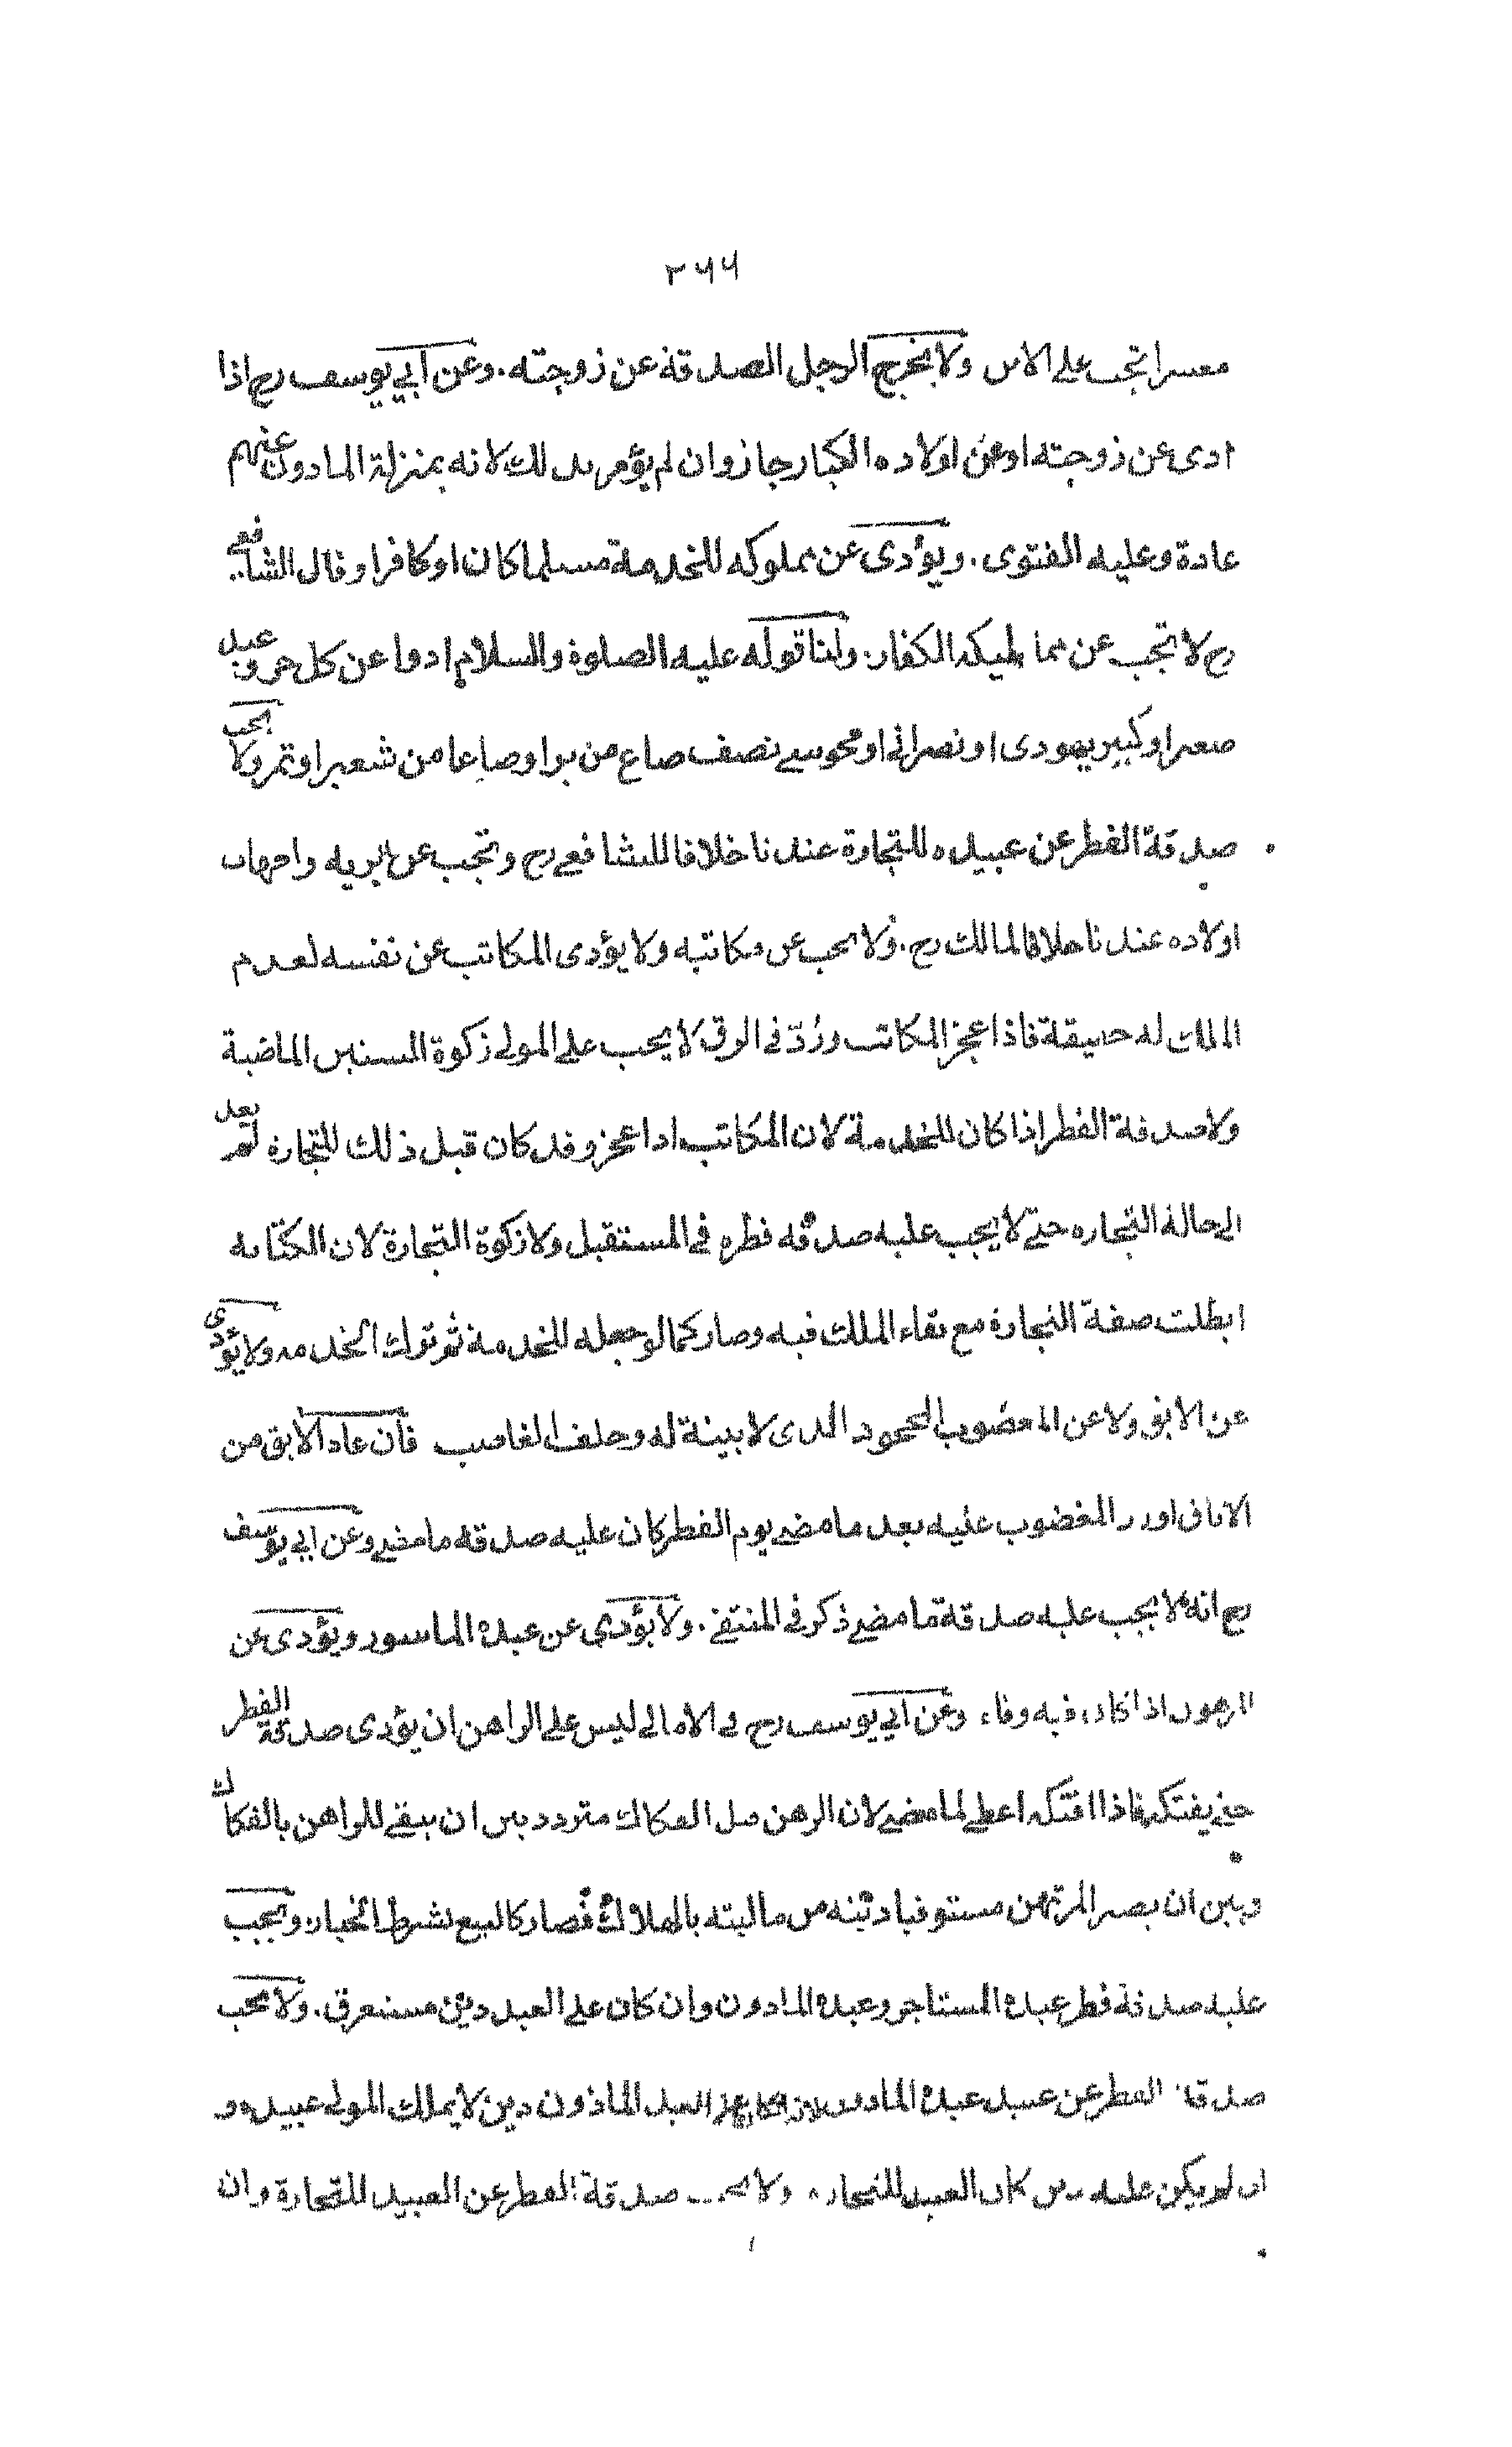 ٢٦٦
معسرا تجب على الاب ولا يخرج الرجل الصدقة عن زوجته. وعن ابي يوسف رح اذا
ادى عن زوجته او عن اولاده الكبار جاز وان لم يؤمر بذلك لانه بمنزلة المادون عنهم
عادة وعليه الفتوى. ويؤدى عن مملوكه للخدمة مسلما كان او كافرا وقال الشافعي
رح لا تجب عن مماليكه الكفار. ولنا قوله عليه الصلوة والسلام ادوا عن كل حر وعبد
صغير او كبير يهودى او نصرانى او مجوسى نصف صاع من بر او صاعا من شعير او تمر ولا يجب
صدقة الفطر عن عبيده للتجارة عندنا خلافا للشافعى رح وتجب عن مدبريه وامهات
اولاده عندنا خلافا لمالك رح. ولا يجب عن مكاتبه ولا يؤدى المكاتب عن نفسه لعدم
الملك له حقيقة فاذا عجز المكاتب ورُدّ فى الرق لا يجب على المولى زكوة السنين الماضية
ولا صدقة الفطر اذا كان للخدمة لان المكاتب اذا عجز وقد كان قبل ذلك للتجارة لم يعد
الى حالة التجاره حتى لا يجب عليه صدقه فطره فى المستقبل ولا زكوة التجارة لان الكتابه
ابطلت صفة التجارة مع بقاء الملك فيه وصار كما لو جعله للخدمة ثم ترك الخدمه ولا يؤدى
عن الابق ولا عن المغصوب المجحود الذى لا بينة له وحلف الغاصب فان عاد الابق من
الاباق او رد المغضوب عليه بعد ما مضى يوم الفطر كان عليه صدقة ما مضى وعن ابى يوسف
رح انه لا يجب عليه صدقة ما مضى ذكر فى المنتقى. ولا يؤدى عن عبده الماسور ويؤدى عن
المرهون اذا كان فيه وفاء وعن ابى يوسف رح فى الامالى ليس على الراهن ان يؤدى صدقة الفطر
حتى يفتكه فاذا افتكه اعطى لما مضى لان الرهن قبل الفكاك متردد بين ان يبقى للراهن بالفكاك
وبين ان يصير المرتهن مستوفيا دينه من ماليته بالهلاك فصار كالبيع بشرط الخيار ويجب
عليه صدقة فطر عبده المستاجر وعبده المادون وان كان على العبد دين مستغرق. ولا يجب
صدقة الفطر عن عبيد عبده المادون لانه اذا كان على العبد الماذون دين لا يملك المولى عبيده و
ان لم يكن عليه دين كان العبيد للتجارة ولا يجب صدقة الفطر عن العبيد للتجارة وان